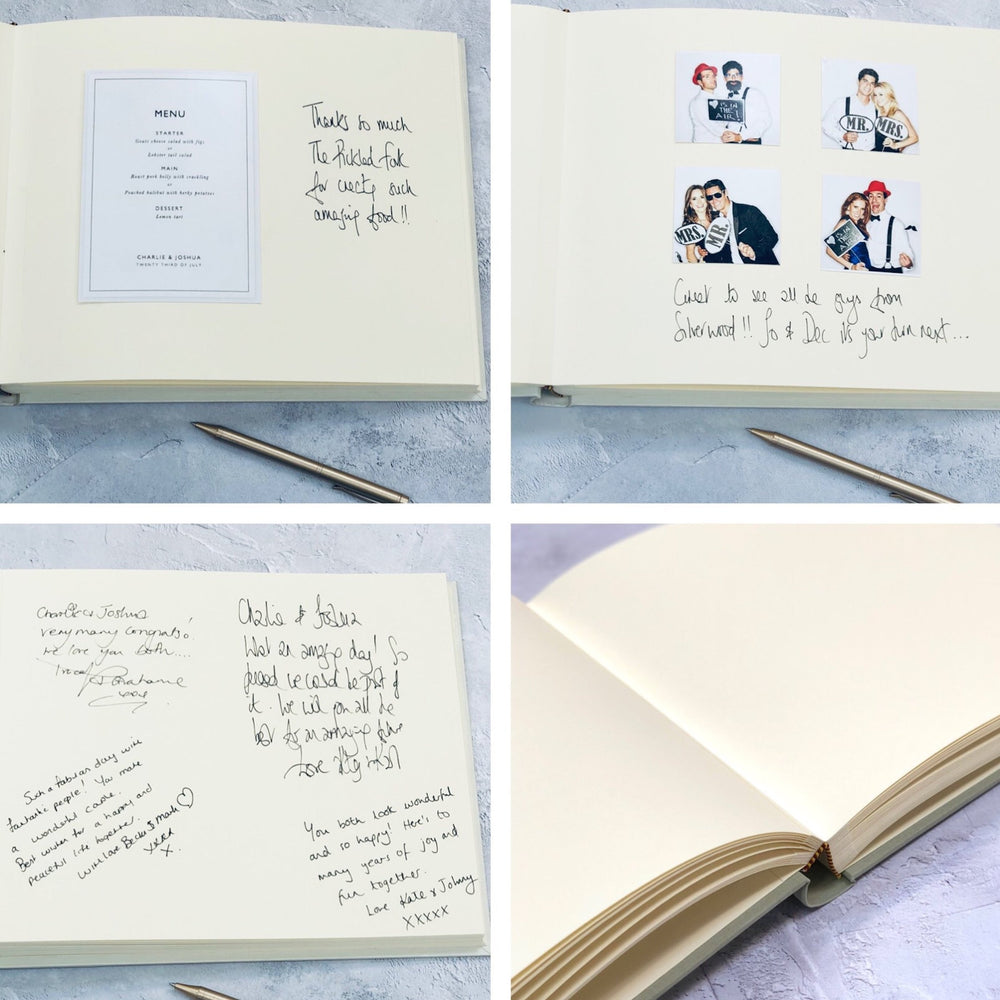 MENU
STARTER
Goats cheese salad with figs
or
Lobster tail salad
MAIN
Roast pork belly with crackling
or
Poached halibut with herby potatoes
DESSERT
Lemon tart
CHARLIE & JOSHUA
TWENTY THIRD OF JULY
Thanks so much
The Pickled Fork
for creating such
amazing food!!
IS IN
THE
AIR!
MR.
MRS.
MRS.
MR.
IS IN
THE
AIR!
Great to see all the guys from
Silverwood!! Jo & Dec it's your turn next...
Charlie & Joshua
very many congrats!
We love you both....
Charlie & Joshua
What an amazing day! So
pleased we could be part of
it. We will you all the
best for an amazing future
Love
Such a fabulous day with
fantastic people! You make
a wonderful couple.
Best wishes for a happy and
peaceful life together.
With love Becks & Mark ♡
xxxx
x.
You both look wonderful
and so happy! Here's to
many years of joy and
fun together.
Love Kate & Johnny
xxxxx